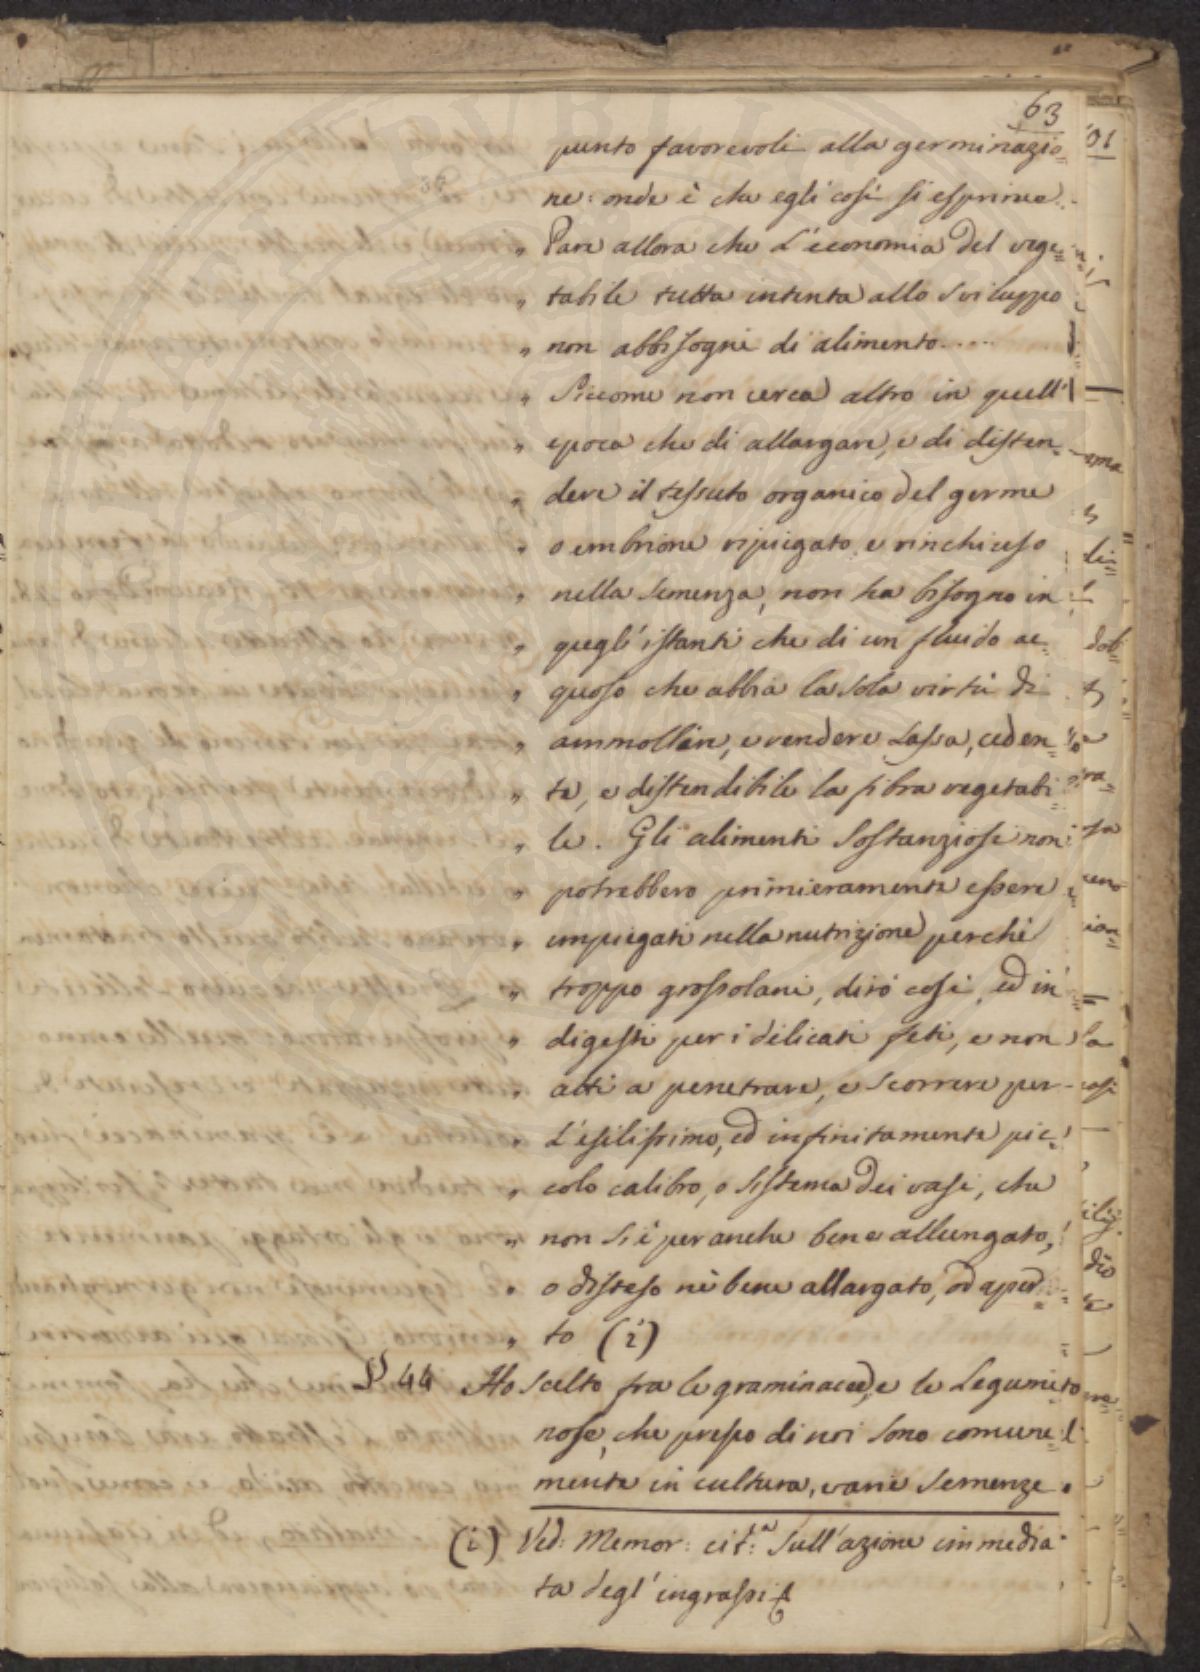 63
punto favorevoli alla germinazio=
ne: onde è che egli così si esprime.
„ Pare allora che l'economia del vege=
„ tabile tutta intenta allo sviluppo
„ non abbisogni di alimento.....
„ Siccome non cerca altro in quell'
„ epoca che di allargare, e di disten=
„ dere il tessuto organico del germe
„ o embrione ripiegato, e rinchiuso
„ nella semenza, non ha bisogno in
„ quegl'istanti che di un fluido ac=
„ quoso che abbia la sola virtù di
„ ammollire, e rendere lassa, ceden=
„ te, e distendibile la fibra vegetabi
„ le. Gli alimenti sostanziosi non
„ potrebbero primieramente essere
„ impiegati nella nutrizione perchè
„ troppo grossolani, dirò così, ed in
„ digesti per i delicati feti, e non
„ atti a penetrare, e scorrere per
„ l'esilissimo, ed infinitamente pic=
„ colo calibro, o sistema dei vasi, che
„ non si è per anche bene allungato,
„ o disteso nè bene allargato, od aper=
„ to (i)
§ 44 Ho scelto fra le graminacee, e le Legumi=
nose, che presso di noi sono comune=
mente in cultura, varie semenze.
(i) Ved: Memor: cit:ª sull'azione immedia
ta degl'ingrassi